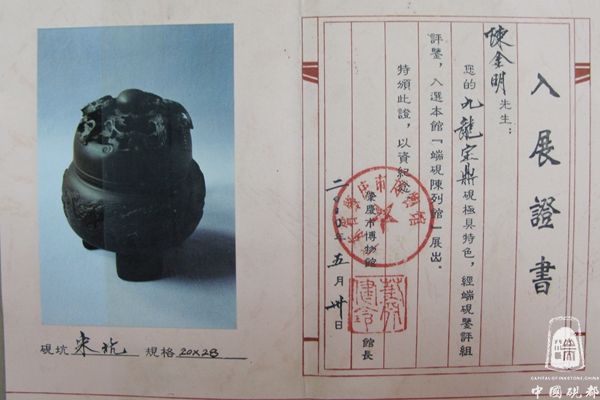 入展證書
陳金明先生：
您的九龍宝鼎硯極具特色，經端硯鑒評組
評鑒，入選本館「端硯陳列館」展出．
特頒此證，以資紀念
肇慶市博物館
館長
二〇〇年五月卅日
硯坑 宋坑 規格 20X28
CAPITAL OF INKSTONE, CHINA
中國硯都